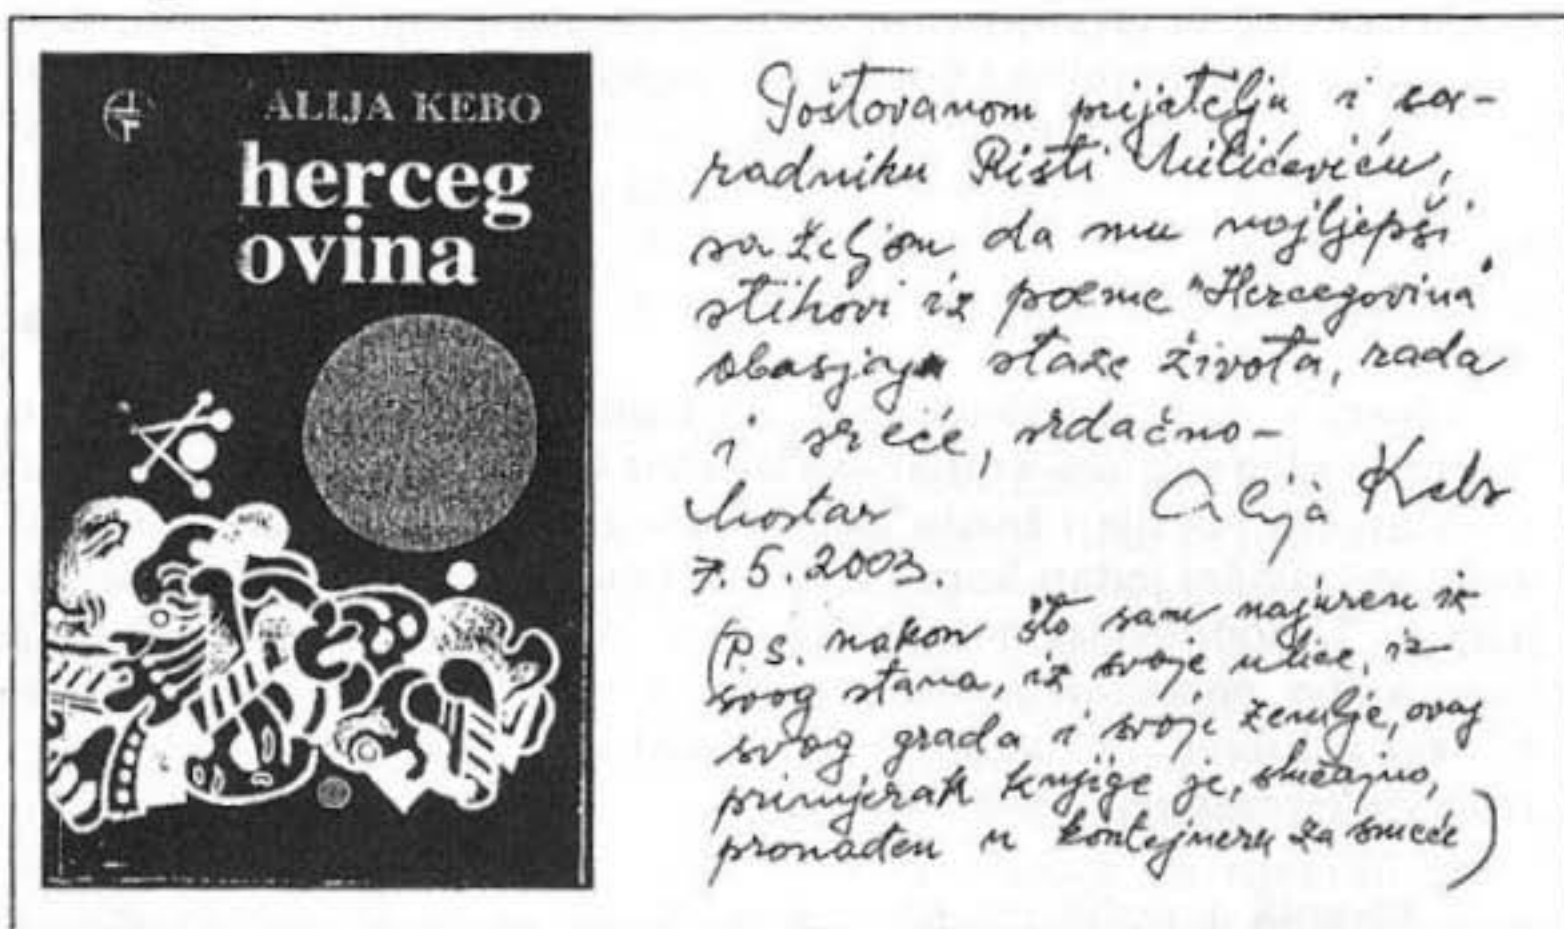 ALIJA KEBO
herceg
ovina
Poštovanom prijatelju i sa-
radniku Risti Milićeviću,
sa željom da mu najljepši
stihovi iz poeme "Hercegovina"
obasjaju staze života, rada
i sreće, srdačno-
Mostar Alija Kebo
7.5.2003.
(P.S. nakon što sam najuren iz
svog stana, iz svoje ulice, iz
svog grada i svoje zemlje, ovaj
primjerak knjige je, slučajno,
pronađen u kontejneru za smeće)